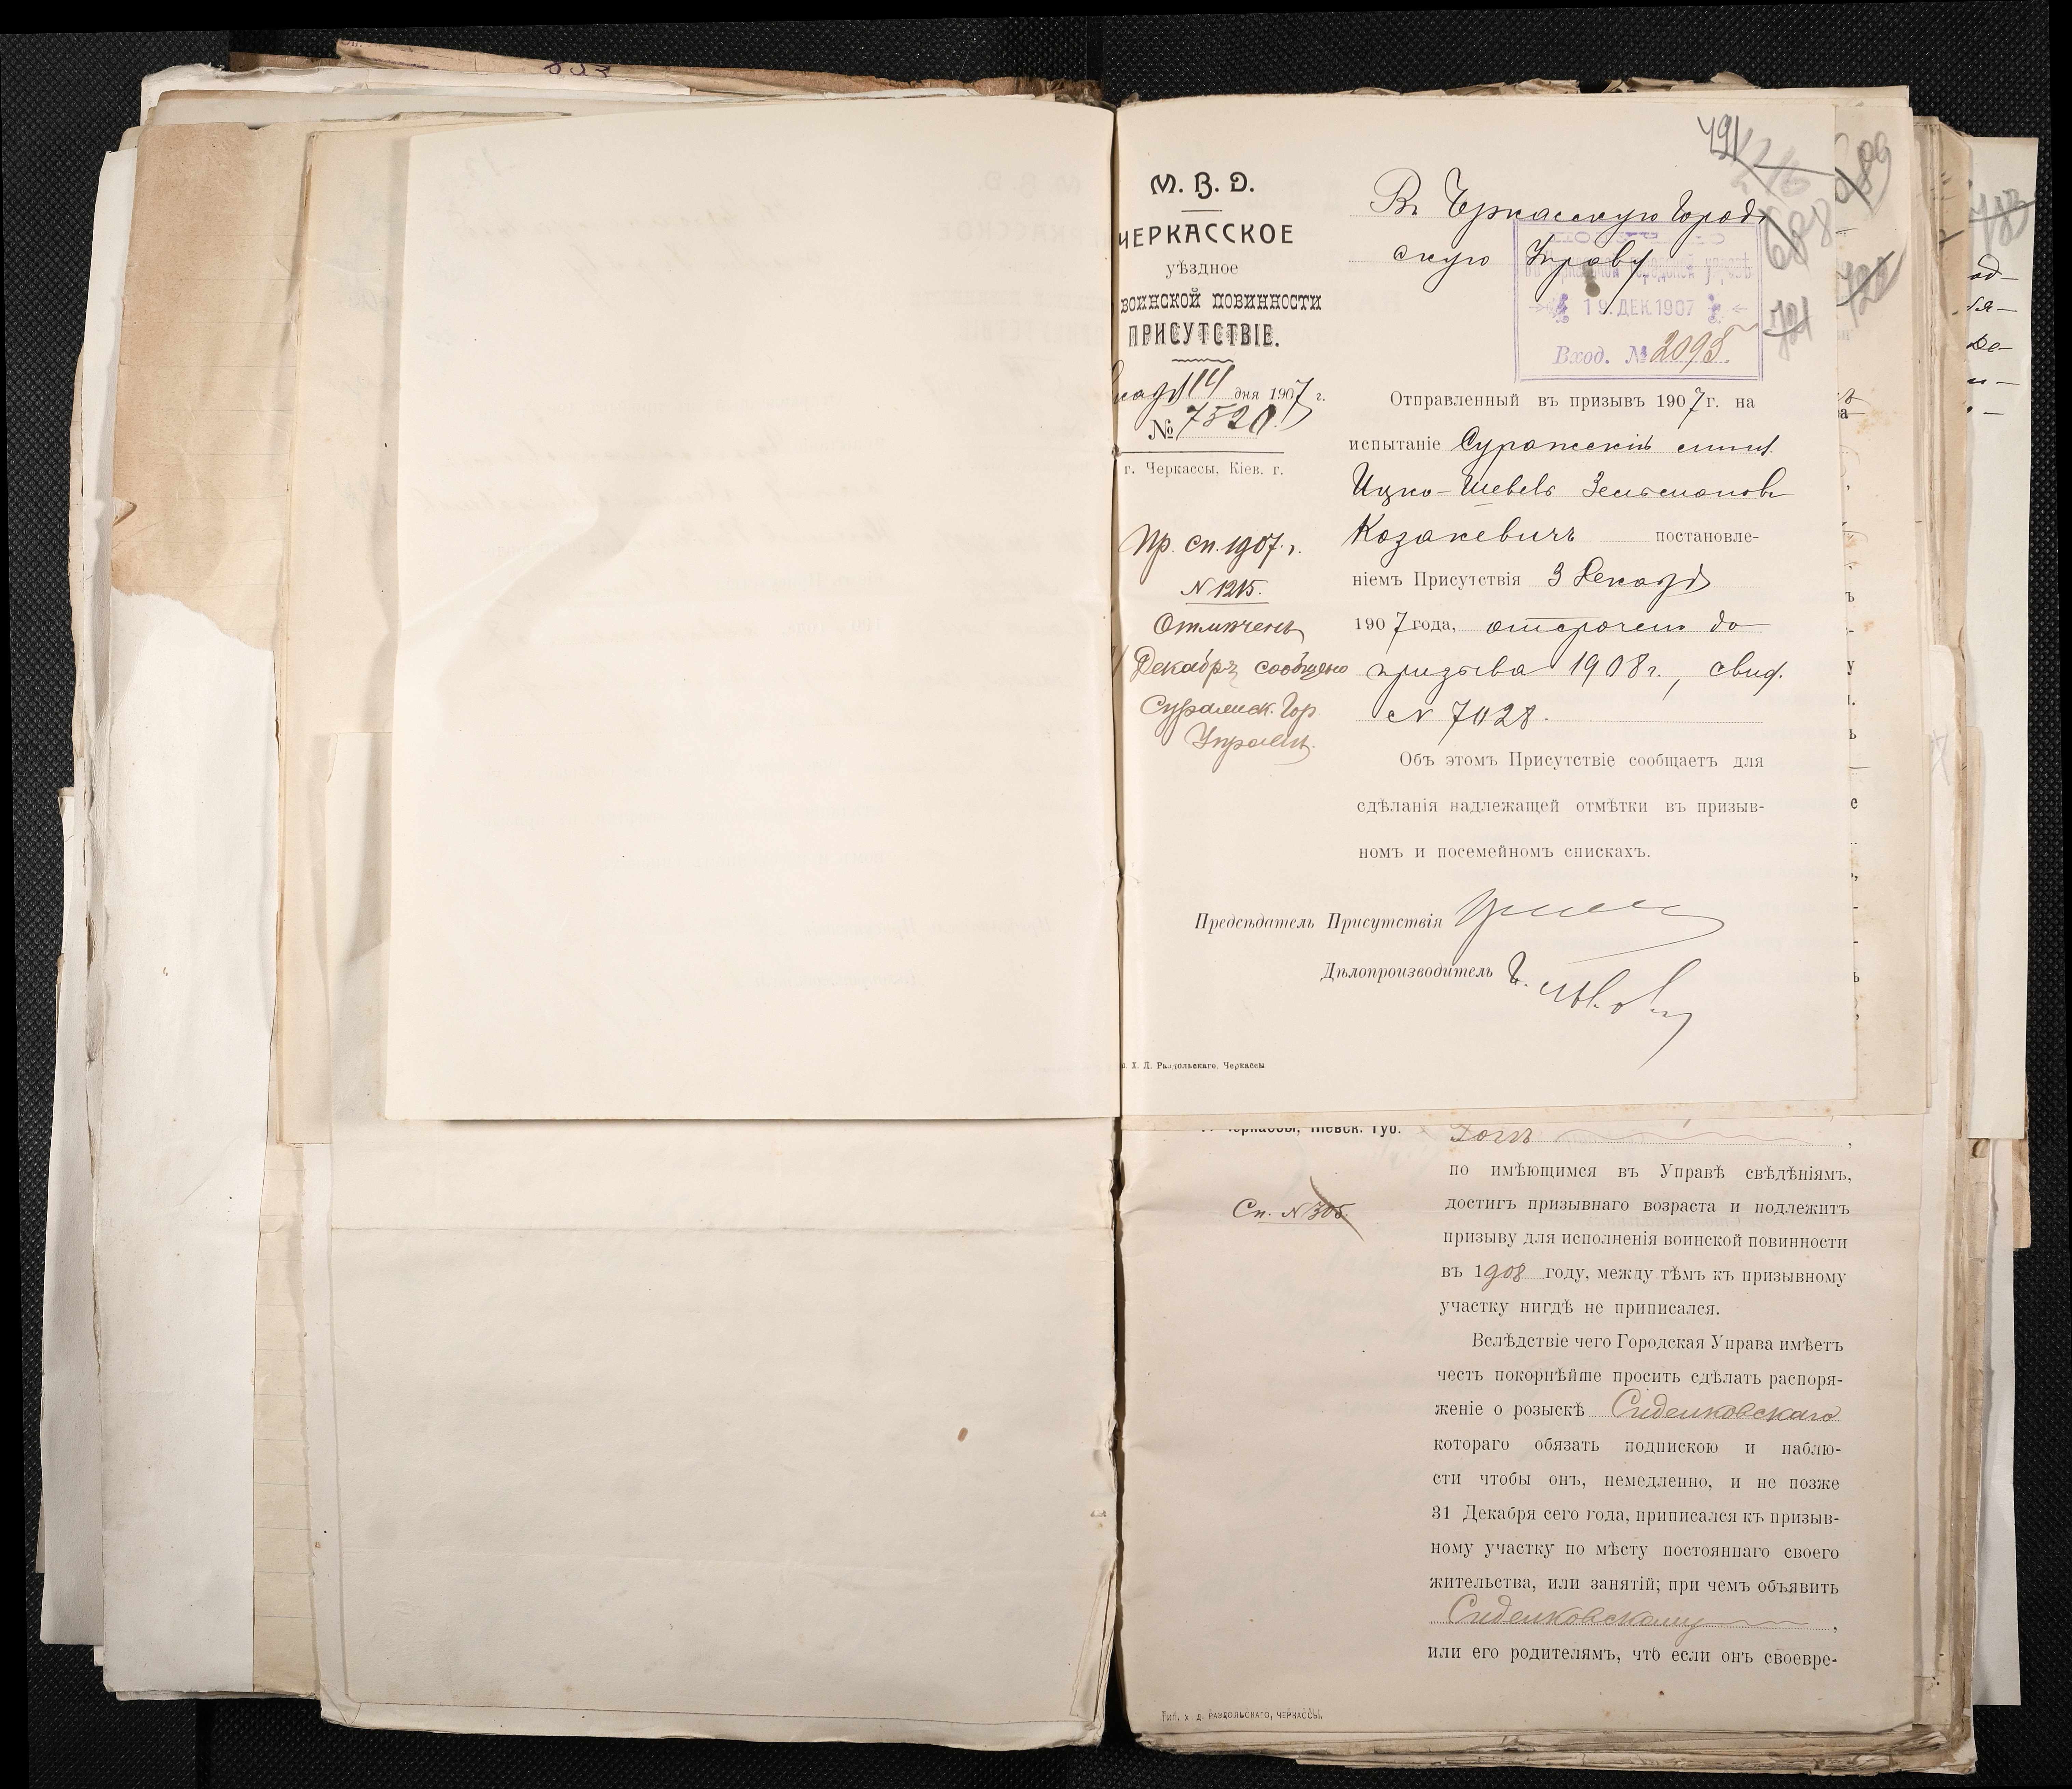 М. В. Д.
ЧЕРКАССКОЕ
уѣздное
ВОИНСКОЙ ПОВИННОСТИ
ПРИСУТСТВІЕ.
14 дня 1907 г.
№ 7520.
г. Черкассы, Кіев. г.
Пр. сп. 1907. г.
N 1215.
Отмѣченъ
Декабря сообщено
Суражск. Гор.
491
688
721
689
722
Въ Черкасскую Город
скую Управу
19. ДЕК. 1907
Вход. № 2095
Отправленный въ призывъ 1907 г. на
испытаніе Суражскій
Ицко-Шевель
Козакевичъ постановле-
ніемъ Присутствія 3 Декабря
1907 года, отсроченъ до
призыва 1908 г., свид.
N 7028.
Объ этомъ Присутствіе сообщаетъ для
сдѣланія надлежащей отмѣтки въ призыв-
номъ и посемейномъ спискахъ.
Предсѣдатель Присутствія
Дѣлопроизводитель
Х. Д. Раздольскаго, Черкассы
Черкассы, Кіевск. Губ.
Сп. N 305.
по имѣющимся въ Управѣ свѣдѣніямъ,
достигъ призывнаго возраста и подлежитъ
призыву для исполненія воинской повинности
въ 1908 году, между тѣмъ къ призывному
участку нигдѣ не приписался.
Вслѣдствіе чего Городская Управа имѣетъ
честь покорнѣйше просить сдѣлать распоря-
женіе о розыскѣ Сиделковскаго
котораго обязать подпискою и наблю-
сти чтобы онъ, немедленно, и не позже
31 Декабря сего года, приписался къ призыв-
ному участку по мѣсту постояннаго своего
жительства, или занятій; при чемъ объявить
Сиделковскому,
или его родителямъ, что если онъ своевре-
Тип. Х. Д. РАЗДОЛЬСКАГО, ЧЕРКАССЫ.